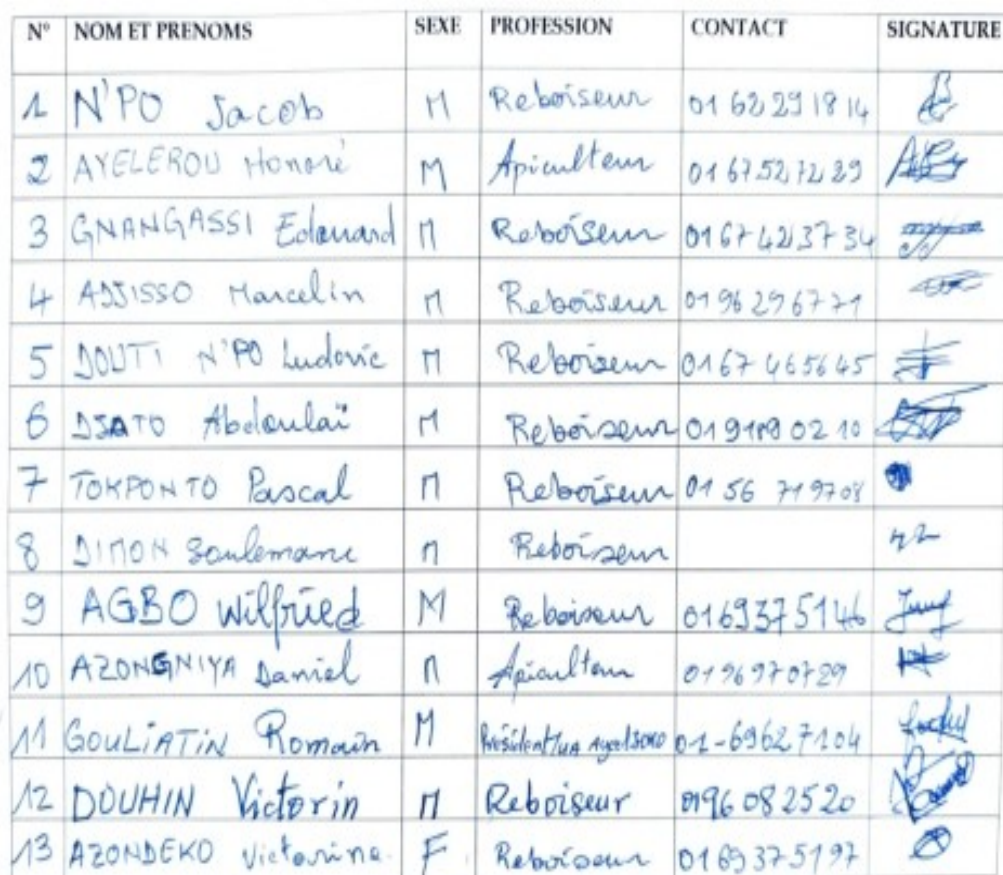 N° NOM ET PRENOMS SEXE PROFESSION CONTACT SIGNATURE
1 N'PO Jacob M Reboiseur 01 62 29 18 14
2 AYELEROU Honoré M Apiculteur 01 67 52 72 29
3 GNANGASSI Edouard M Reboiseur 01 67 42 37 34
4 ADJISSO Marcelin M Reboiseur 01 96 29 67 71
5 DOUTI N'PO Ludovic M Reboiseur 01 67 46 56 45
6 DJATO Abdoulaï M Reboiseur 02 10
7 TOKPONTO Pascal M Reboiseur 01 56 71 97 08
8 DIMON Soulemane M Reboiseur
9 AGBO Wilfried M Reboiseur 01 69 37 51 46
10 AZONGNIYA Daniel M Apiculteur 01 96 97 07 29
11 GOULIATIN Romain M Président 01-69627104
12 DOUHIN Victorin M Reboiseur 0196 08 25 20
13 AZONDEKO Victorine F Reboiseur 01 69 37 51 97